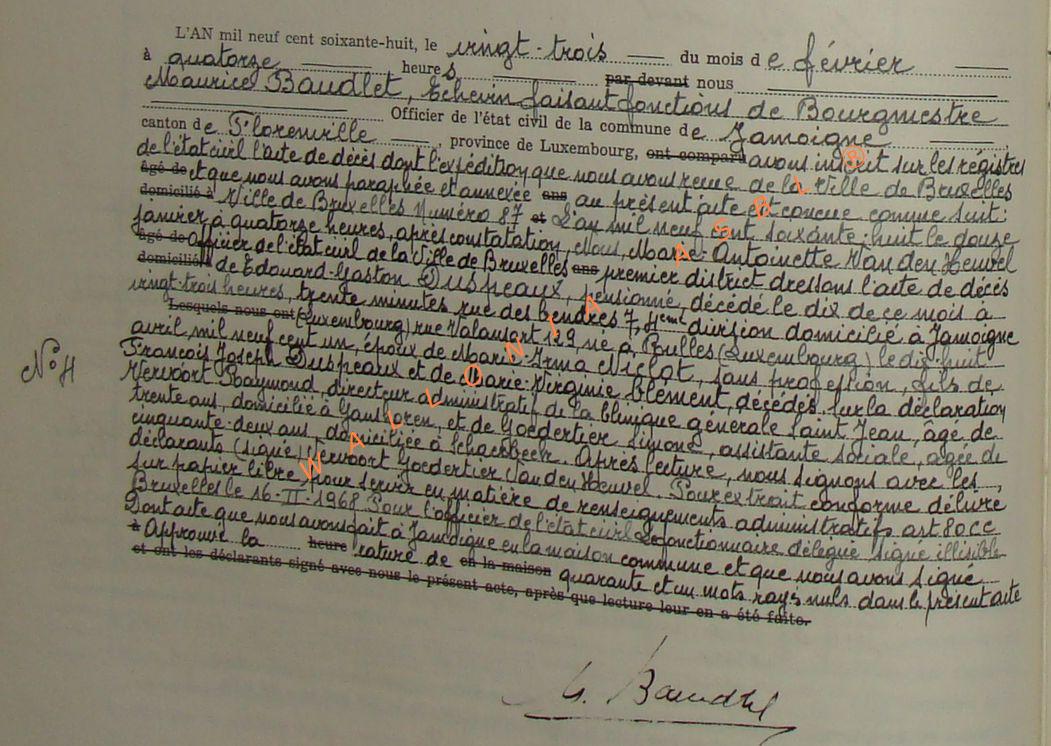 L'AN mil neuf cent soixante-huit, le vingt-trois du mois de février
à quatorze heures, par devant nous
Maurice Baudlet, Echevin faisant fonctions de Bourgmestre
Officier de l'état civil de la commune de Jamoigne
canton de Florenville, province de Luxembourg, ont comparu avons inscrit sur les régistres
de l'état civil l'acte de décès dont l'expédition que nous avons reçue de la Ville de Bruxelles
âgé de et que nous avons paraphée et annexée ans au présent acte est conçue comme suit:
domicilié à Ville de Bruxelles Numéro 87 et L'an mil neuf cent soixante-huit le douze
janvier à quatorze heures, après constatation, Nous, Marie-Antoinette Van den Heuvel
âgé de officier de l'état civil de la Ville de Bruxelles ans premier district dressons l'acte de décès
domiciliés à de Edouard-Gaston Duspeaux, pensionné, décédé le dix de ce mois à
vingt-trois heures, trente minutes rue des Cendres 7, 4eme division domicilié à Jamoigne
Lesquels nous ont (Luxembourg) rue Valansart 129 né à Bulles (Luxembourg) le dix-huit
avril mil neuf cent un, époux de Marie-Irma Niclot, sans profession, fils de
François Joseph Duspeaux et de Marie-Virginie Blement, décédés. Sur la déclaration
Vervoort Raymond, directeur administratif de la Clinique générale Saint Jean, âgé de
trente ans, domicilié à et de Goedertier Simone, assistante sociale, âgée de
cinquante-deux ans, domiciliée à Schaerbeek. Après lecture, nous signons avec les
déclarants (signé) Vervoort Goedertier Van den Heuvel. Pour extrait conforme délivré
sur papier libre pour servir en matière de renseignements administratifs art 80 CC
Bruxelles le 16-II-1968 Pour l'officier de l'état civil Le fonctionnaire délégué signé illisible
Dont acte que nous avons fait à Jamoigne en la maison commune et que nous avons signé
à Approuvé la heure rature de en la maison quarante et un mots rayés nuls dans le présent acte
et ont les déclarants signé avec nous le présent acte, après que lecture leur en a été faite.
N° 4
M. Baudlet
WALLONIA ASBL ®